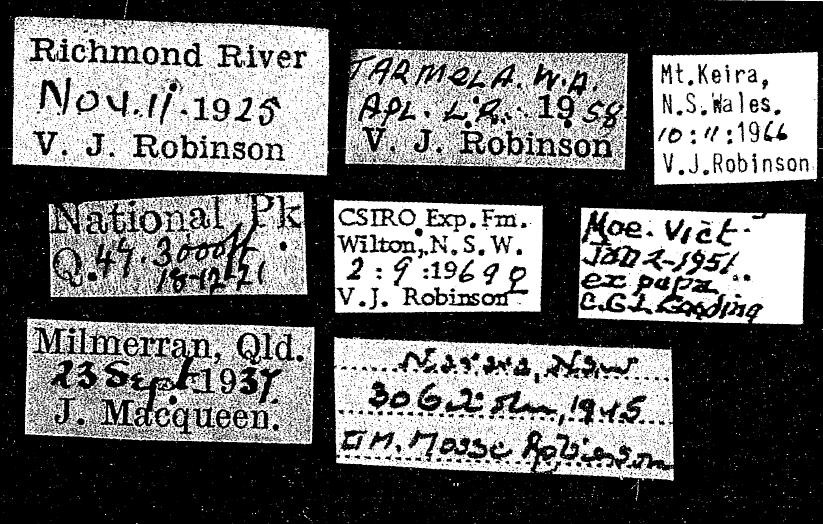 Richmond River
Nov. 11. 1925
V. J. Robinson
TARMOLA. W.A.
1958
V. J. Robinson
Mt. Keira,
N.S.Wales.
10:11:1966
V.J.Robinson
National Pk
Q. 3000ft
18-12-21
CSIRO Exp. Fm.
Wilton, N. S. W.
2:9:1969 ♀
V.J. Robinson
Moe. Vict.
Jan 2-1951.
ex pupa
C.G.L. Gooding
Milmerran, Qld.
23 Sept 1937
J. Macqueen.
Narara, NSW
1945
Robinson